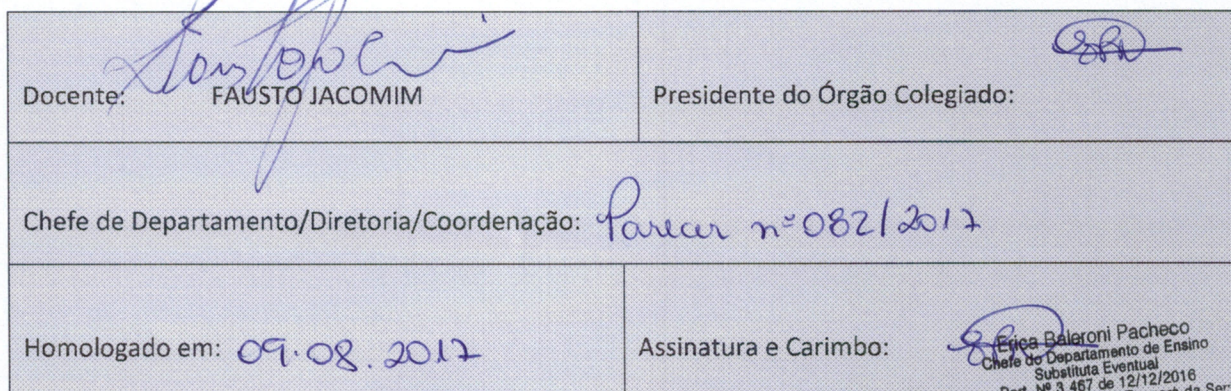 Docente: FAUSTO JACOMIM
Presidente do Órgão Colegiado:
Chefe de Departamento/Diretoria/Coordenação: Parecer nº 082/2017
Homologado em: 09.08.2017
Assinatura e Carimbo:
Erica Baleroni Pacheco
Chefe do Departamento de Ensino
Substituta Eventual
Port. Nº 3.467 de 12/12/2016